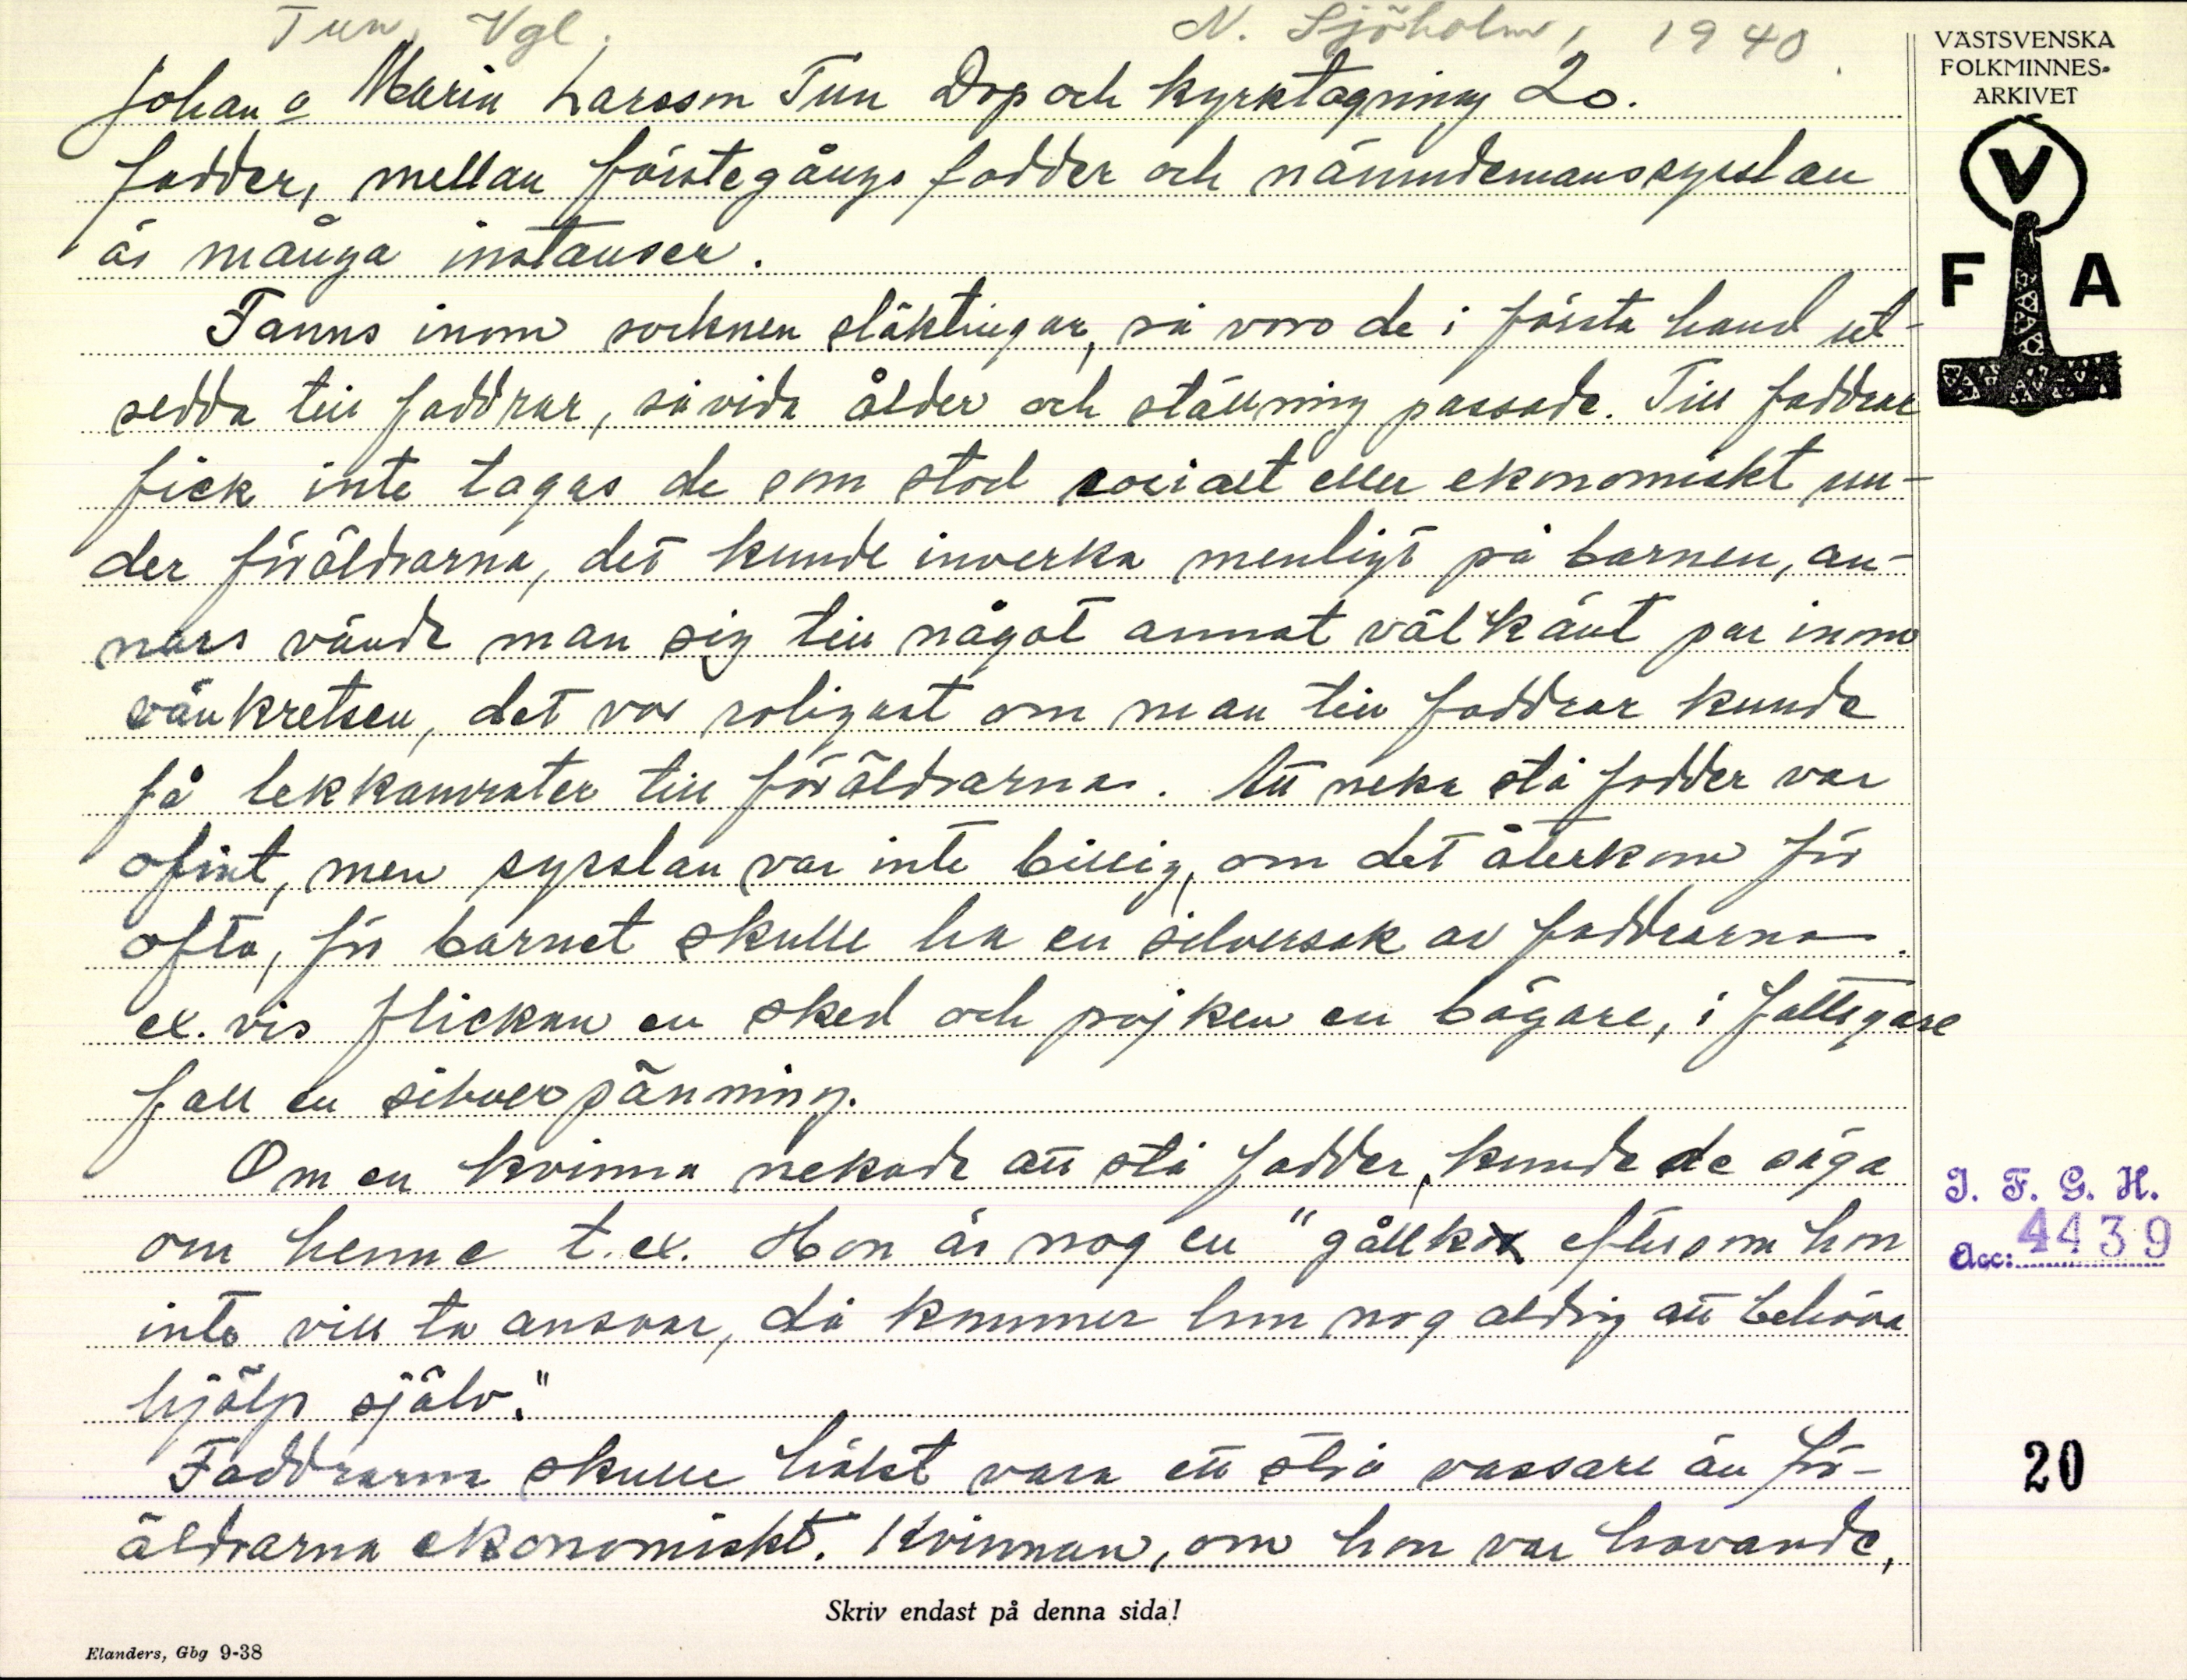 Tun, Vgl.
N. Sjöholm, 1940.
VÄSTSVENSKA
FOLKMINNES-
ARKIVET
V
F A
Johan o Maria Larsson Tun Dop och kyrktagning 20.
fadder, mellan förstegångs fadder och nämndemanssysslan
är många instanser.
Fanns inom socknen släktingar, så voro de i första hand ut-
sedda till faddrar, såvida ålder och ställning passade. Till faddrar
fick inte tagas de som stod socialt eller ekonomiskt un-
der föräldrarna, det kunde inverka menligt på barnen, an-
nars vände man sig till något annat välkänt par inom
vänkretsen, det var roligast om man till faddrar kunde
få lekkamrater till föräldrarna. Att neka stå fadder var
ofint, men sysslan var inte billig, om det återkom för
ofta, för barnet skulle ha en silversak av faddrarna.
ex. vis flickan en sked och pojken en bägare, i fattigare
fall en silverpänning.
Om en kvinna nekade att stå fadder, kunde de säga
om henne t.ex. Hon är nog en "gållko eftersom hon
inte vill ta ansvar, då kommer hon nog aldrig att behöva
hjälp själv."
Faddrarna skulle hälst vara ett strå vassare än för-
äldrarna ekonomiskt. Kvinnan, om hon var havande,
I. F. G. H.
Acc: 4439
20
Skriv endast på denna sida!
Elanders, Gbg 9-38